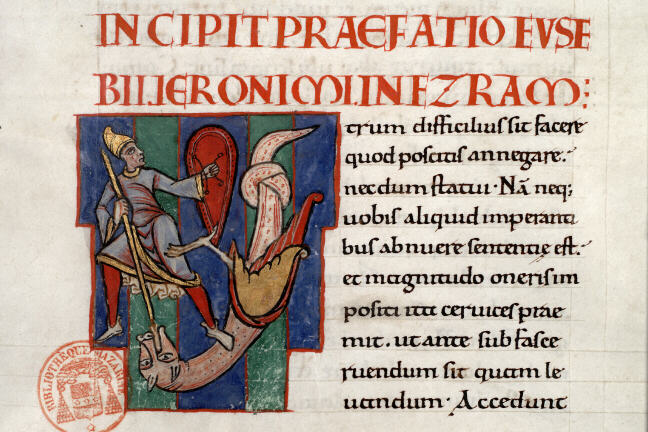 INCIPIT PRAEFATIO EUSE
BII IERONIMI IN EZRAM:
trum difficilius sit facere
quod poscitis an negare.
necdum statui. Nā neq;
vobis aliquid imperanti
bus abnuere sententie est.
et magnitudo oneris im
positi ita cervices prae
mit. ut ante sub fasce
ruendum sit quam le
vandum. Accedunt
BIBLIOTHEQUE MAZARINE